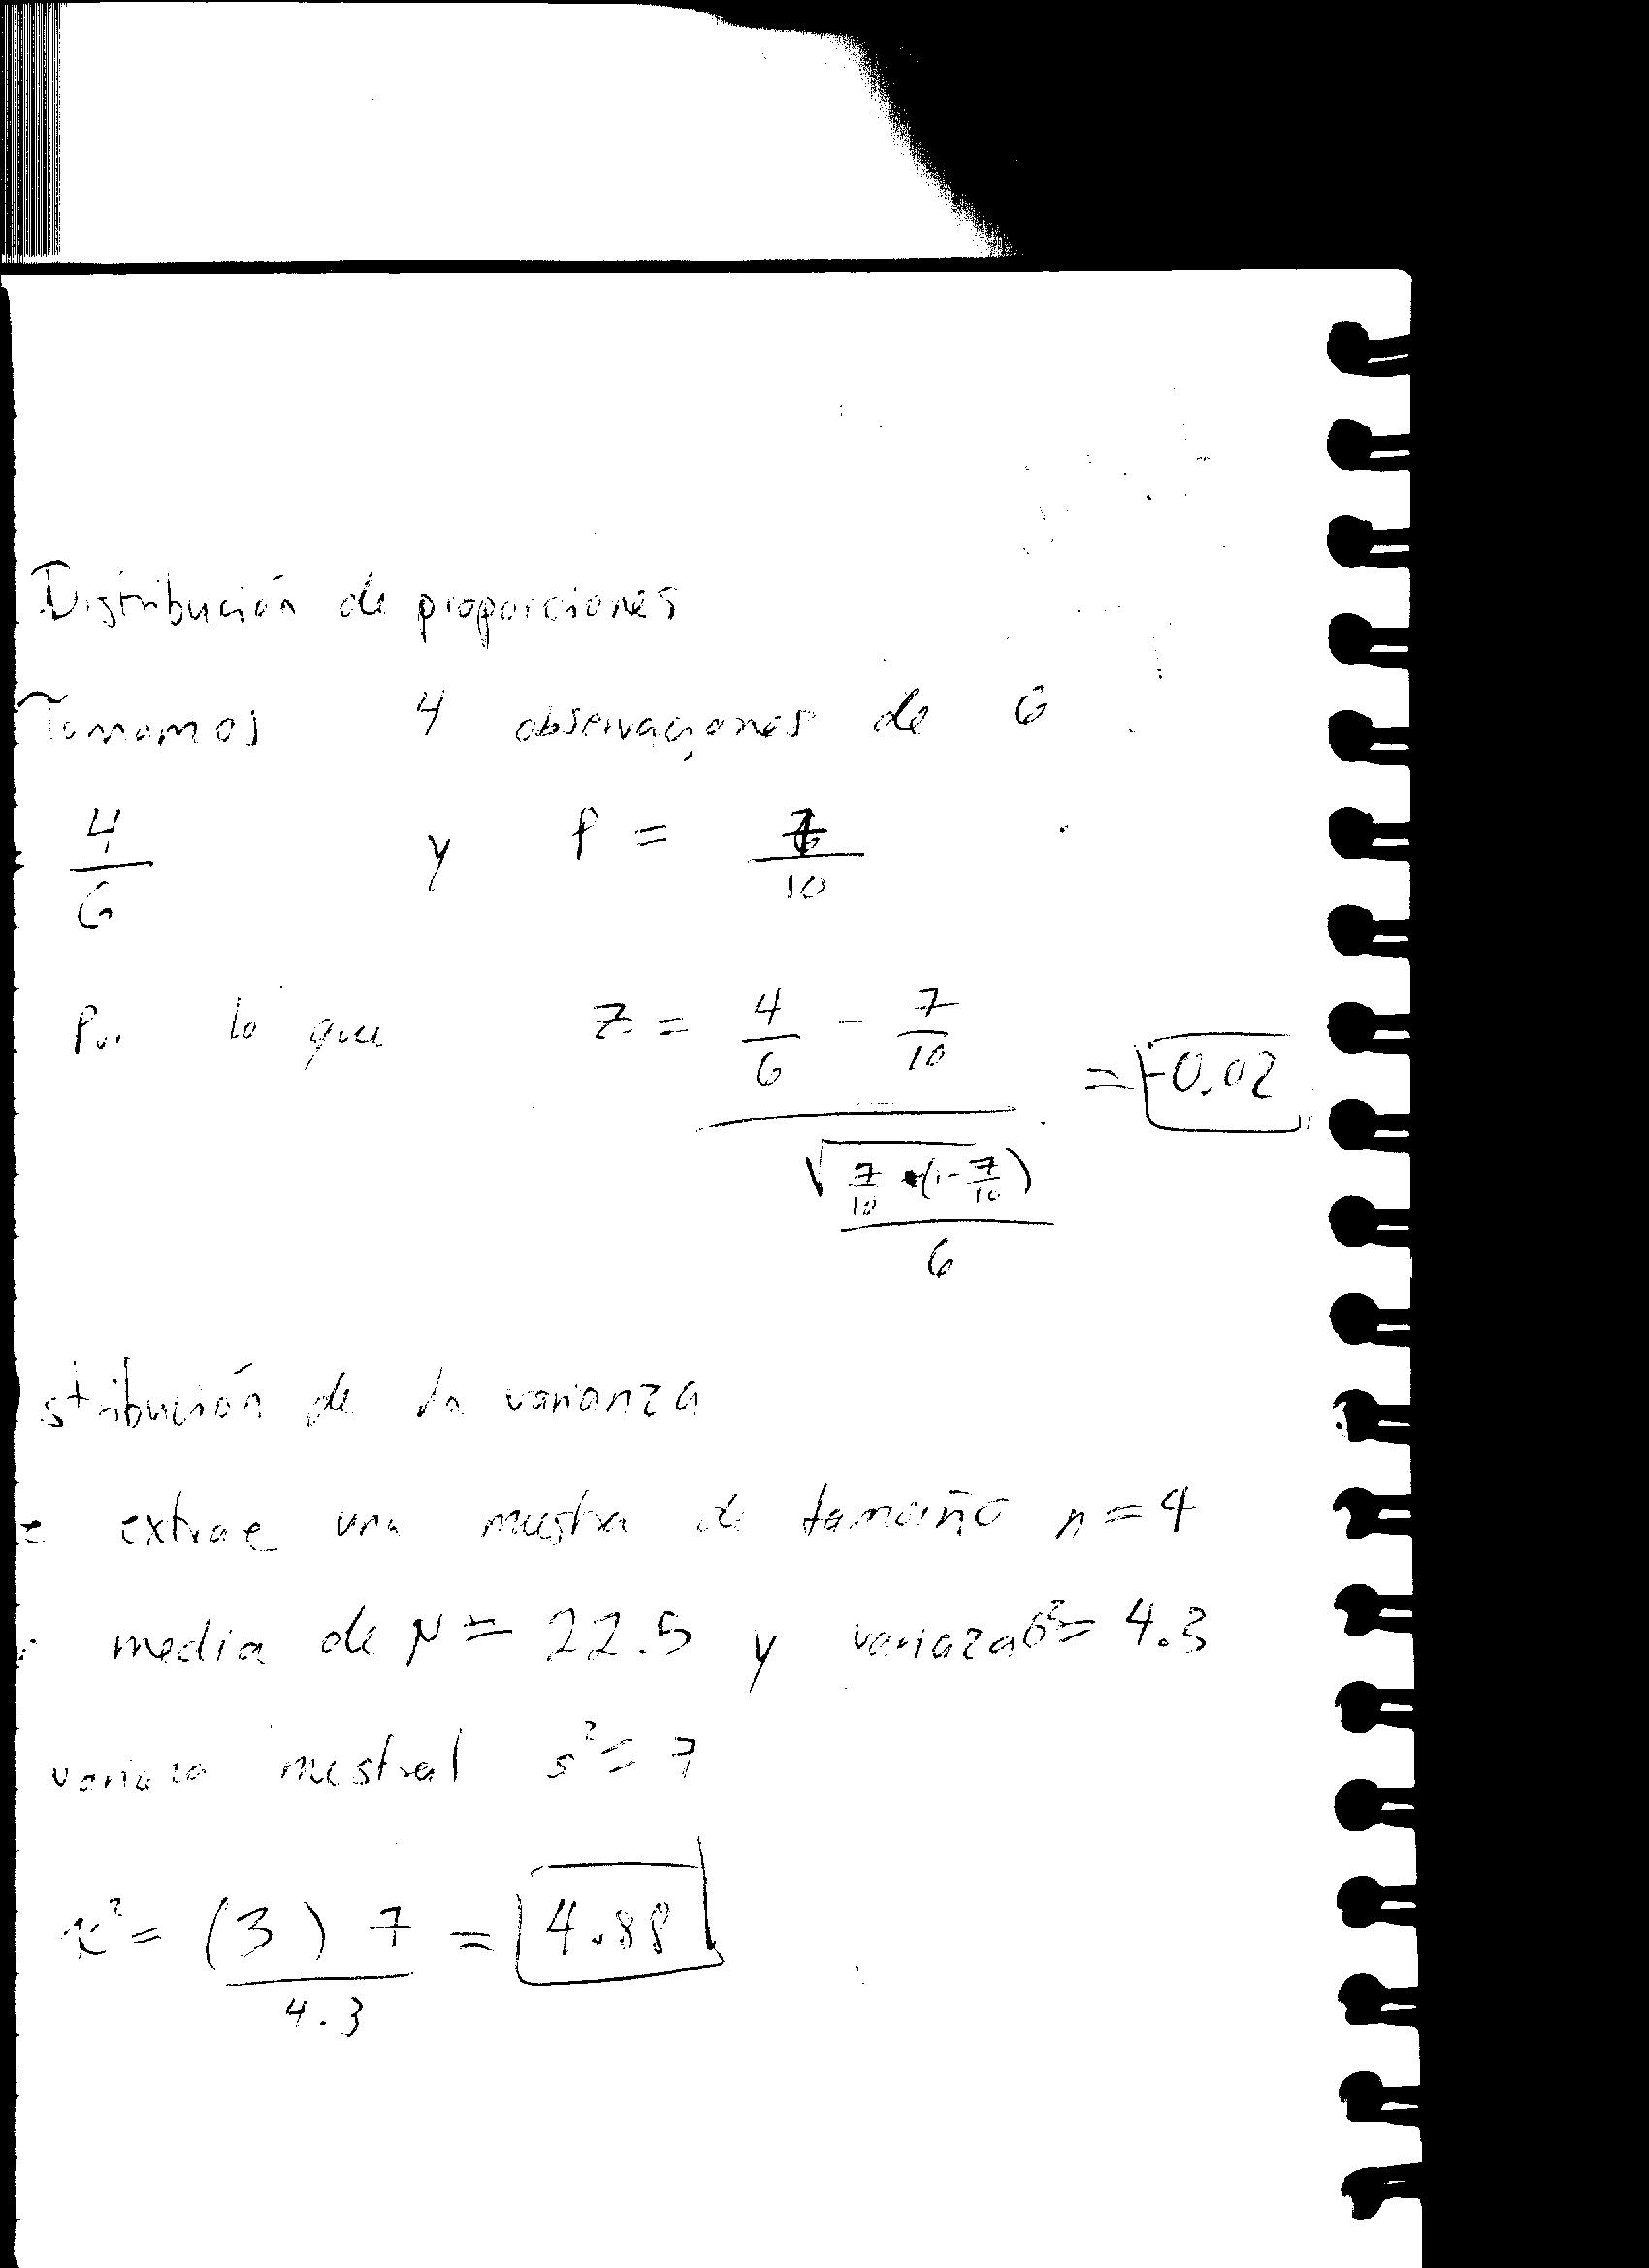 Distribución de proporciones
Tomamos 4 observaciones de 6
4/6 y P = 7/10
Por lo que z = (4/6 - 7/10) / (√(7/10 · (1 - 7/10)) / 6) = -0.02
stribución de la varianza
e extrae una mustra de tamaño n = 4
media de μ = 22.5 y variaza σ² = 4.3
variaza mestral s² = 7
x² = (3) 7 / 4.3 = 4.88